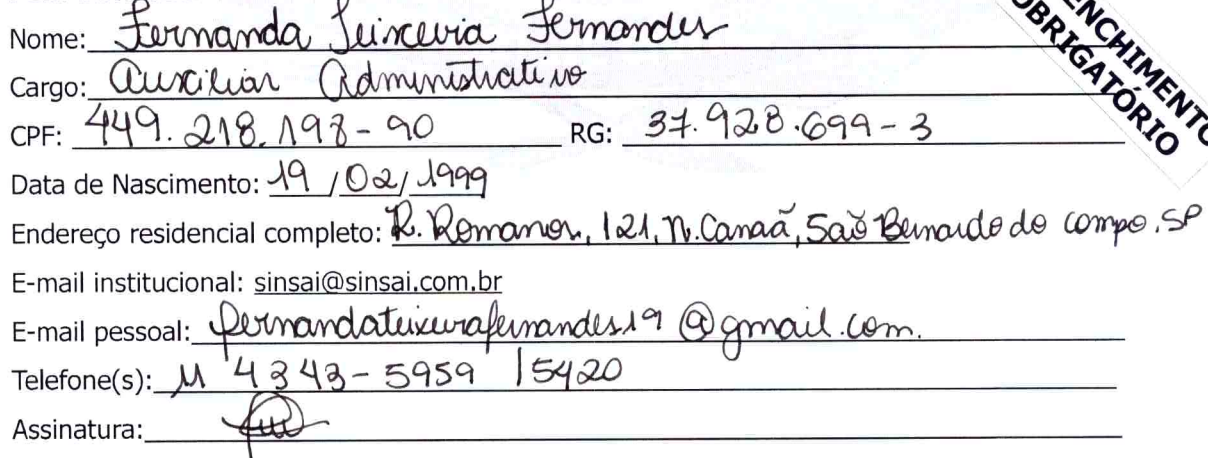 Nome: Fernanda Teixeira Fernandes
Cargo: Auxiliar Administrativo
CPF: 449.218.198-90 RG: 37.928.699-3
Data de Nascimento: 19/02/1999
Endereço residencial completo: R. Romanos, 121, N. Canaã, São Bernardo do Campo. SP
E-mail institucional: sinsai@sinsai.com.br
E-mail pessoal: fernandateixeirafernandes19@gmail.com.
Telefone(s): 11 4343-5959 / 5420
Assinatura:
ENCHIMENTO
OBRIGATÓRIO